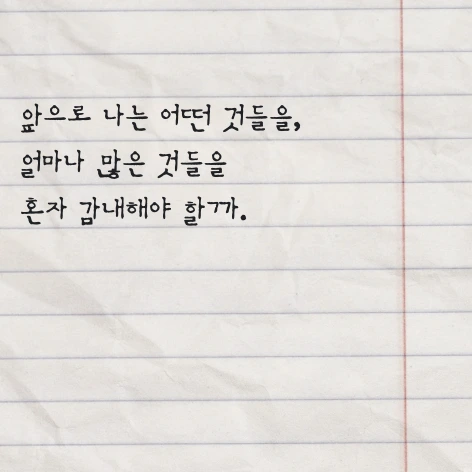 앞으로 나는 어떤 것들을,
얼마나 많은 것들을
혼자 감내해야 할까.